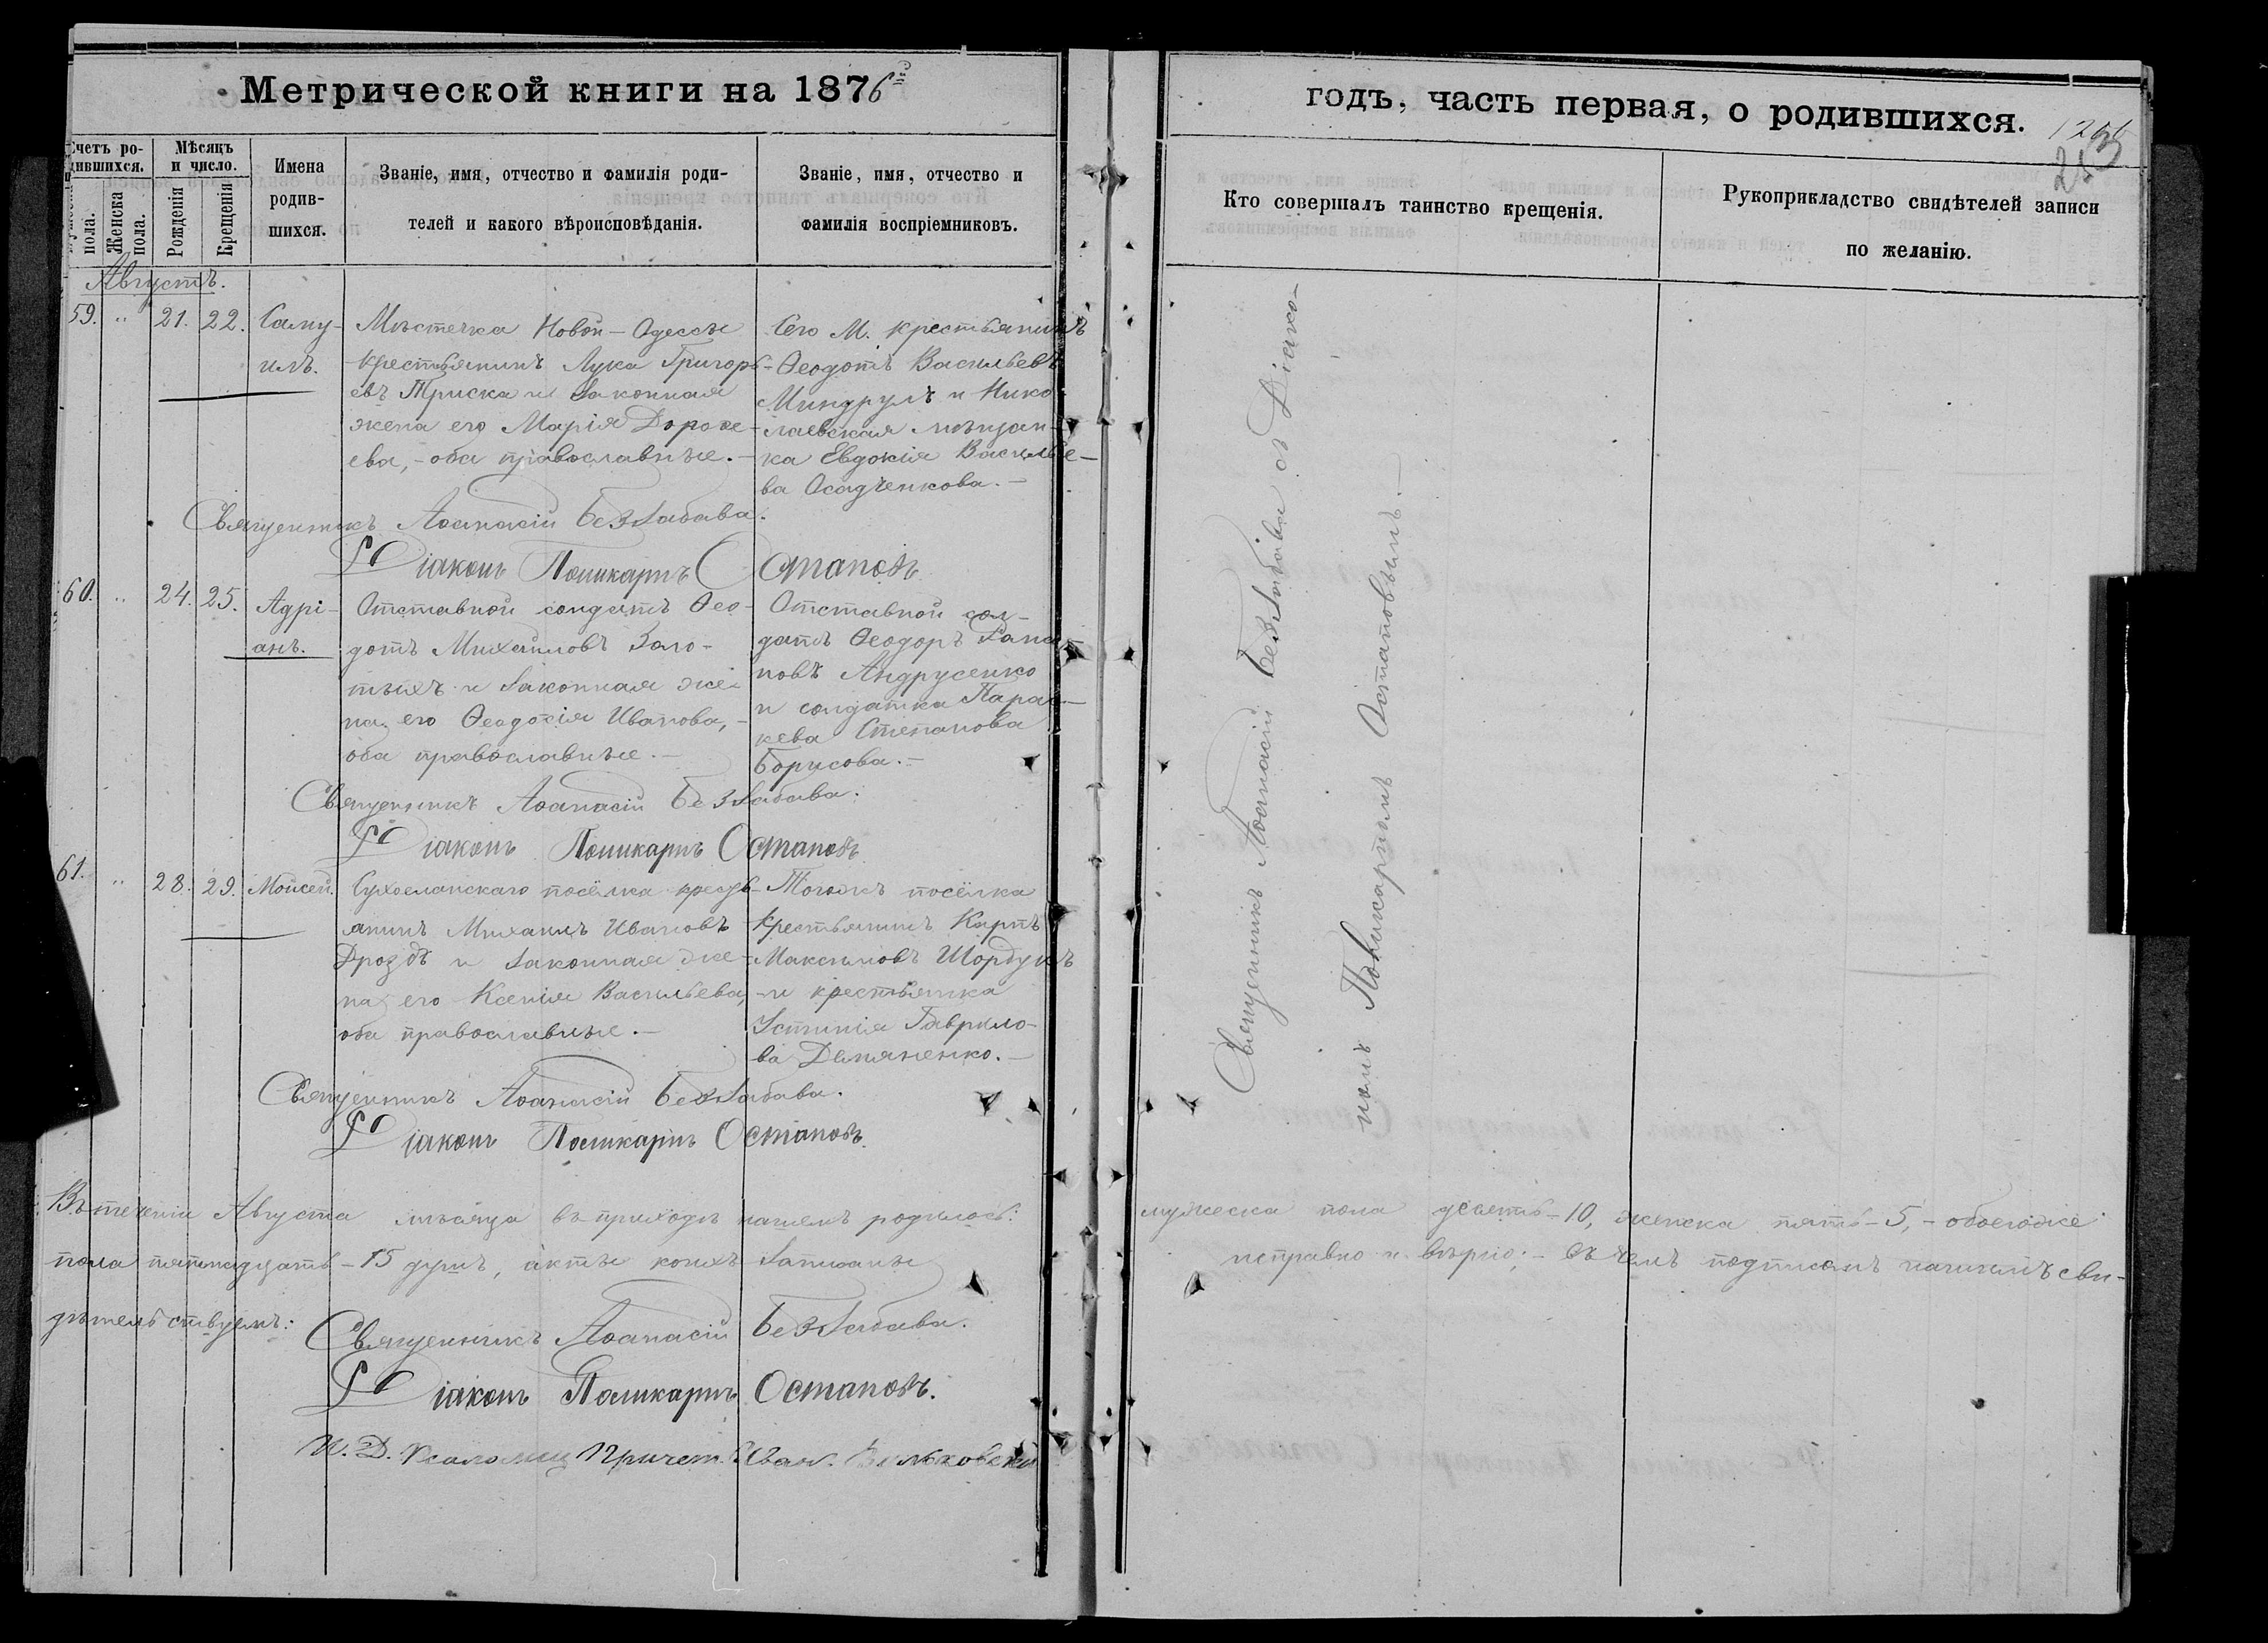 Метрической книги на 1876й
годъ, часть первая, о родившихся.
253
Счетъ ро-
дившихся.
Мѣсяцъ
и число.
Имена
родив-
шихся.
Званіе, имя, отчество и фамилія роди-
телей и какого вѣроисповѣданія.
Званіе, имя, отчество и
фамилія воспріемниковъ.
пола.
Женска
пола.
Рожденія
Крещенія
Кто совершалъ таинство крещенія.
Рукоприкладство свидѣтелей записи
по желанію.
Августъ.
59. " 21. 22. Саму-
илъ.
Мѣстечка Новой-Одессы
крестьянинъ Лука Григорь-
евъ Триска и законная
жена его Марія Дороѳе-
ева, - оба православные.-
Сего М. крестьянинъ
Ѳеодотъ Васильевъ
Миндрулъ и Нико-
лаевская мѣщан-
ка Евдокія Василье-
ва Осадченкова.-
Священникъ Аѳанасій Беззабава.
Діаконъ Поликарпъ Остаповъ
60. " 24. 25. Адрі-
анъ.
Отставной солдатъ Ѳео-
дотъ Михайловъ Золо-
тыхъ и законная же-
на его Ѳеодосія Иванова,-
оба православные.-
Отставной сол-
датъ Ѳеодоръ
повъ Андрусенко
и солдатка Парас-
кева Степанова
Борисова.-
Священникъ Аѳанасій Беззабава.
Діаконъ Поликарпъ Остаповъ
61. " 28. 29. Моисей.
Сухоеланскаго посёлка кресть-
янинъ Михаилъ Ивановъ
Дроздъ и законная же-
на его Ксенія Васильева,
оба православные.-
Тогожъ посёлка
крестьянинъ Карпъ
Максимовъ Шордукъ
и крестьянка
Устинія Гаврило-
ва Демяненко.-
Священникъ Аѳанасій Беззабава.
Діаконъ Поликарпъ Остаповъ.
Священникъ Аѳанасій Беззабава съ Діако-
номъ Поликарпомъ Остаповымъ.-
Въ теченіи Августа мѣсяца въ приходѣ нашемъ родилось: мужеска пола десять-10, женска пять-5,- обоегоже
пола пятнадцать-15 душъ, акты коихъ записаны исправно и вѣрно;- въ чемъ подписомъ нашимъ сви-
дѣтельствуемъ:
Священникъ Аѳанасій Беззабава.
Діаконъ Поликарпъ Остаповъ.
И. Д. Псаломщ Причет.